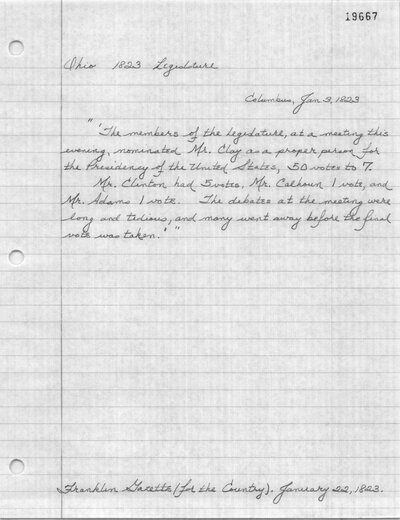 19667
Ohio 1823 Legislature
Columbus, Jan 3, 1823
"'The members of the legislature, at a meeting this
evening, nominated Mr. Clay as a proper person for
the Presidency of the United States, 50 votes to 7.
Mr. Clinton had 5 votes, Mr. Calhoun 1 vote, and
Mr. Adams 1 vote. The debates at the meeting were
long and tedious, and many went away before the final
vote was taken.'"
Franklin Gazette (for the Country). January 22, 1823.